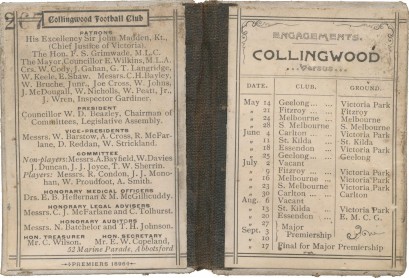 267
Collingwood Football Club
PATRONS
His Excellency Sir John Madden, Kt.,
(Chief Justice of Victoria).
The Hon. F. S. Grimwade, M.L.C.
The Mayor, Councillor E. Wilkins, M.L.A.
Crs. W. Cody, J. Gahan, G. T. Langridge,
W. Keele, E. Shaw. Messrs. C. H. Bayley,
W. Beazley, Junr., Joe Cross, W. Johns,
J. McDougall, W. Nicholls, W. Peatt, Jr.,
J. Wren, Inspector Gardiner.
PRESIDENT
Councillor W. D. Beazley, Chairman of
Committees, Legislative Assembly.
VICE-PRESIDENTS
Messrs. W. Barstow, A. Cross, R. McFar-
lane, D. Reddan, W. Strickland.
COMMITTEE
Non-players: Messrs. A. Bayfield, W. Davies
J. Duncan, J. J. Joyce, T. W. Sherrin.
Players: Messrs. R. Condon, J. J. Mono-
han, W. Proudfoot, A. Smith.
HONORARY MEDICAL OFFICERS
Drs. E. B. Heffernan & M. McGillicuddy.
HONORARY LEGAL ADVISERS
Messrs. C. J. McFarlane and C. Tolhurst.
HONORARY AUDITORS
Messrs. N. Batchelor and T. H. Johnson.
HON. TREASURER HON. SECRETARY
Mr. C. Wilson. Mr. E. W. Copeland,
52 Marine Parade, Abbotsford
PREMIERS 1896
ENGAGEMENTS.
COLLINGWOOD
Versus
DATE. CLUB. GROUND.
May 14 Geelong Victoria Park
21 Fitzroy Fitzroy
24 Melbourne Melbourne
28 S. Melbourne S. Melbourne
June 4 Carlton Victoria Park
11 St. Kilda St. Kilda
18 Essendon Victoria Park
25 Geelong Geelong
July 2 Vacant
9 Fitzroy Victoria Park
16 Melbourne Victoria Park
23 S. Melbourne Victoria Park
30 Carlton Carlton
Aug. 6 Vacant
13 St. Kilda Victoria Park
20 Essendon E. M. C. G.
27
Sept. 3 Major
10 Premiership
17 Final for Major Premiership